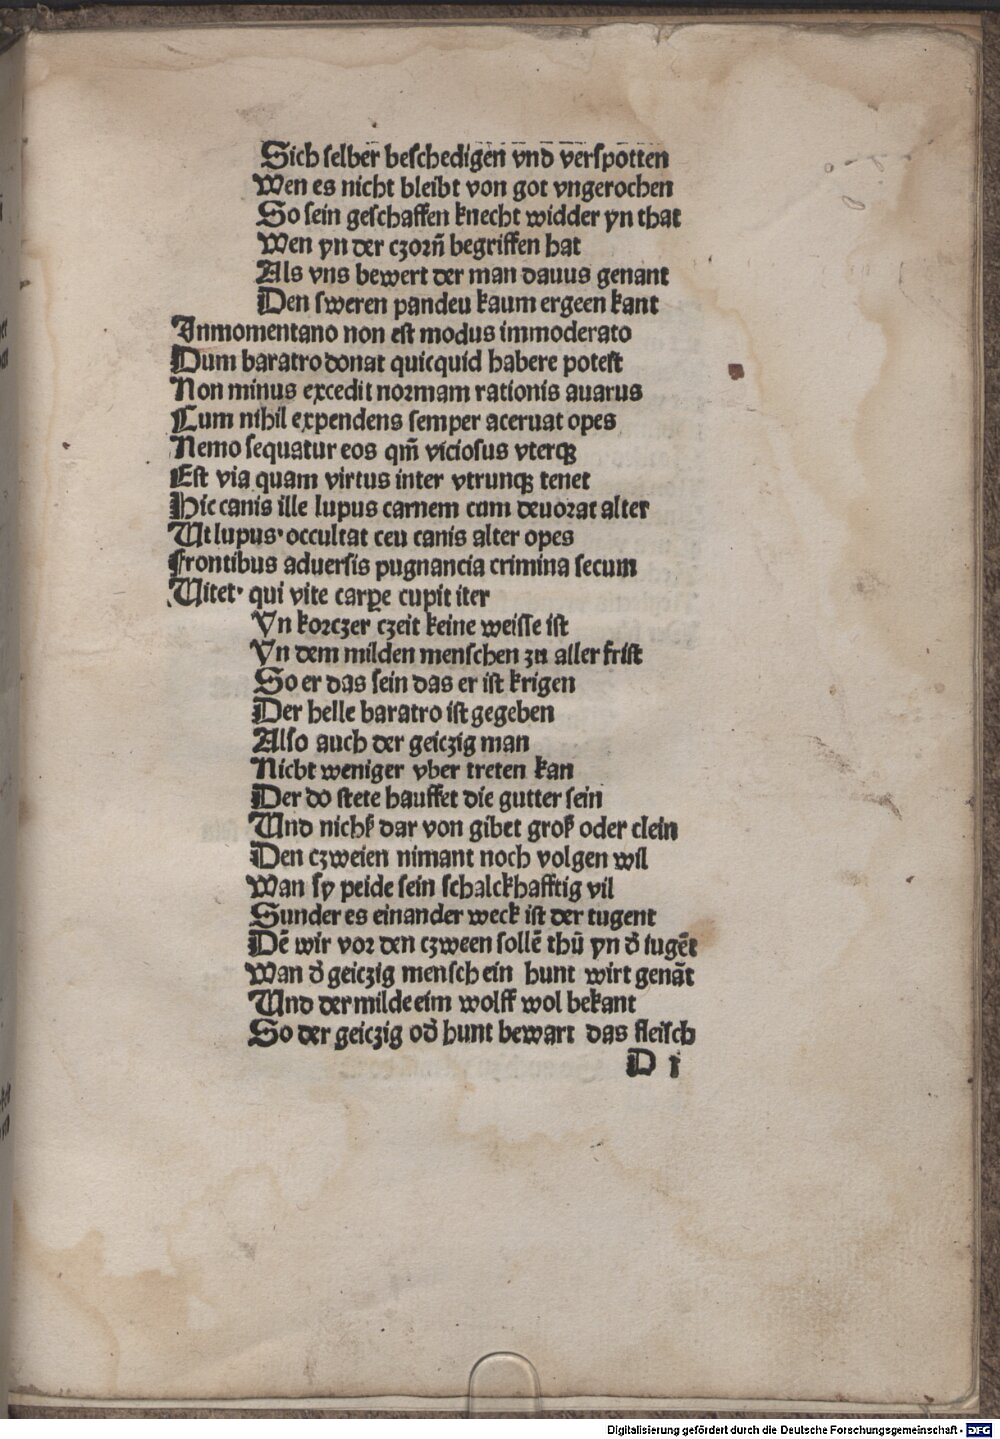 Sich selber beschedigen vnd verspotten
Wen es nicht bleibt von got vngerochen
So sein geschaffen knecht widder yn that
Wen yn der czorn̄ begriffen hat
Als vns bewert der man dauus genant
Den sweren pandeu kaum ergeen kant
Inmomentano non est modus immoderato
Dum baratro donat quicquid habere potest
Non minus excedit normam rationis auarus
Cum nihil expendens semper aceruat opes
Nemo sequatur eos qm̄ viciosus vterqꝫ
Est via quam virtus inter vtrunqꝫ tenet
Hic canis ille lupus carnem cum deuorat alter
Vt lupus· occultat ceu canis alter opes
Frontibus aduersis pugnancia crimina secum
Vitet· qui vite carpe cupit iter
Yn korczer czeit keine weisse ist
Yn dem milden menschen zu aller frist
So er das sein das er ist krigen
Der helle baratro ist gegeben
Also auch der geiczig man
Nicht weniger vber treten kan
Der do stete hauffet die gutter sein
Vnd nichß dar von gibet groß oder clein
Den czweien nimant noch volgen wil
Wan sy peide sein schalckhafftig vil
Sunder es einander weck ist der tugent
Dē wir vor den czween sollē thū yn d̄ iugēt
Wan d̄ geiczig mensch ein hunt wirt genāt
Vnd der milde eim wolff wol bekant
So der geiczig od̄ hunt bewart das fleisch
D i
Digitalisierung gefördert durch die Deutsche Forschungsgemeinschaft - DFG